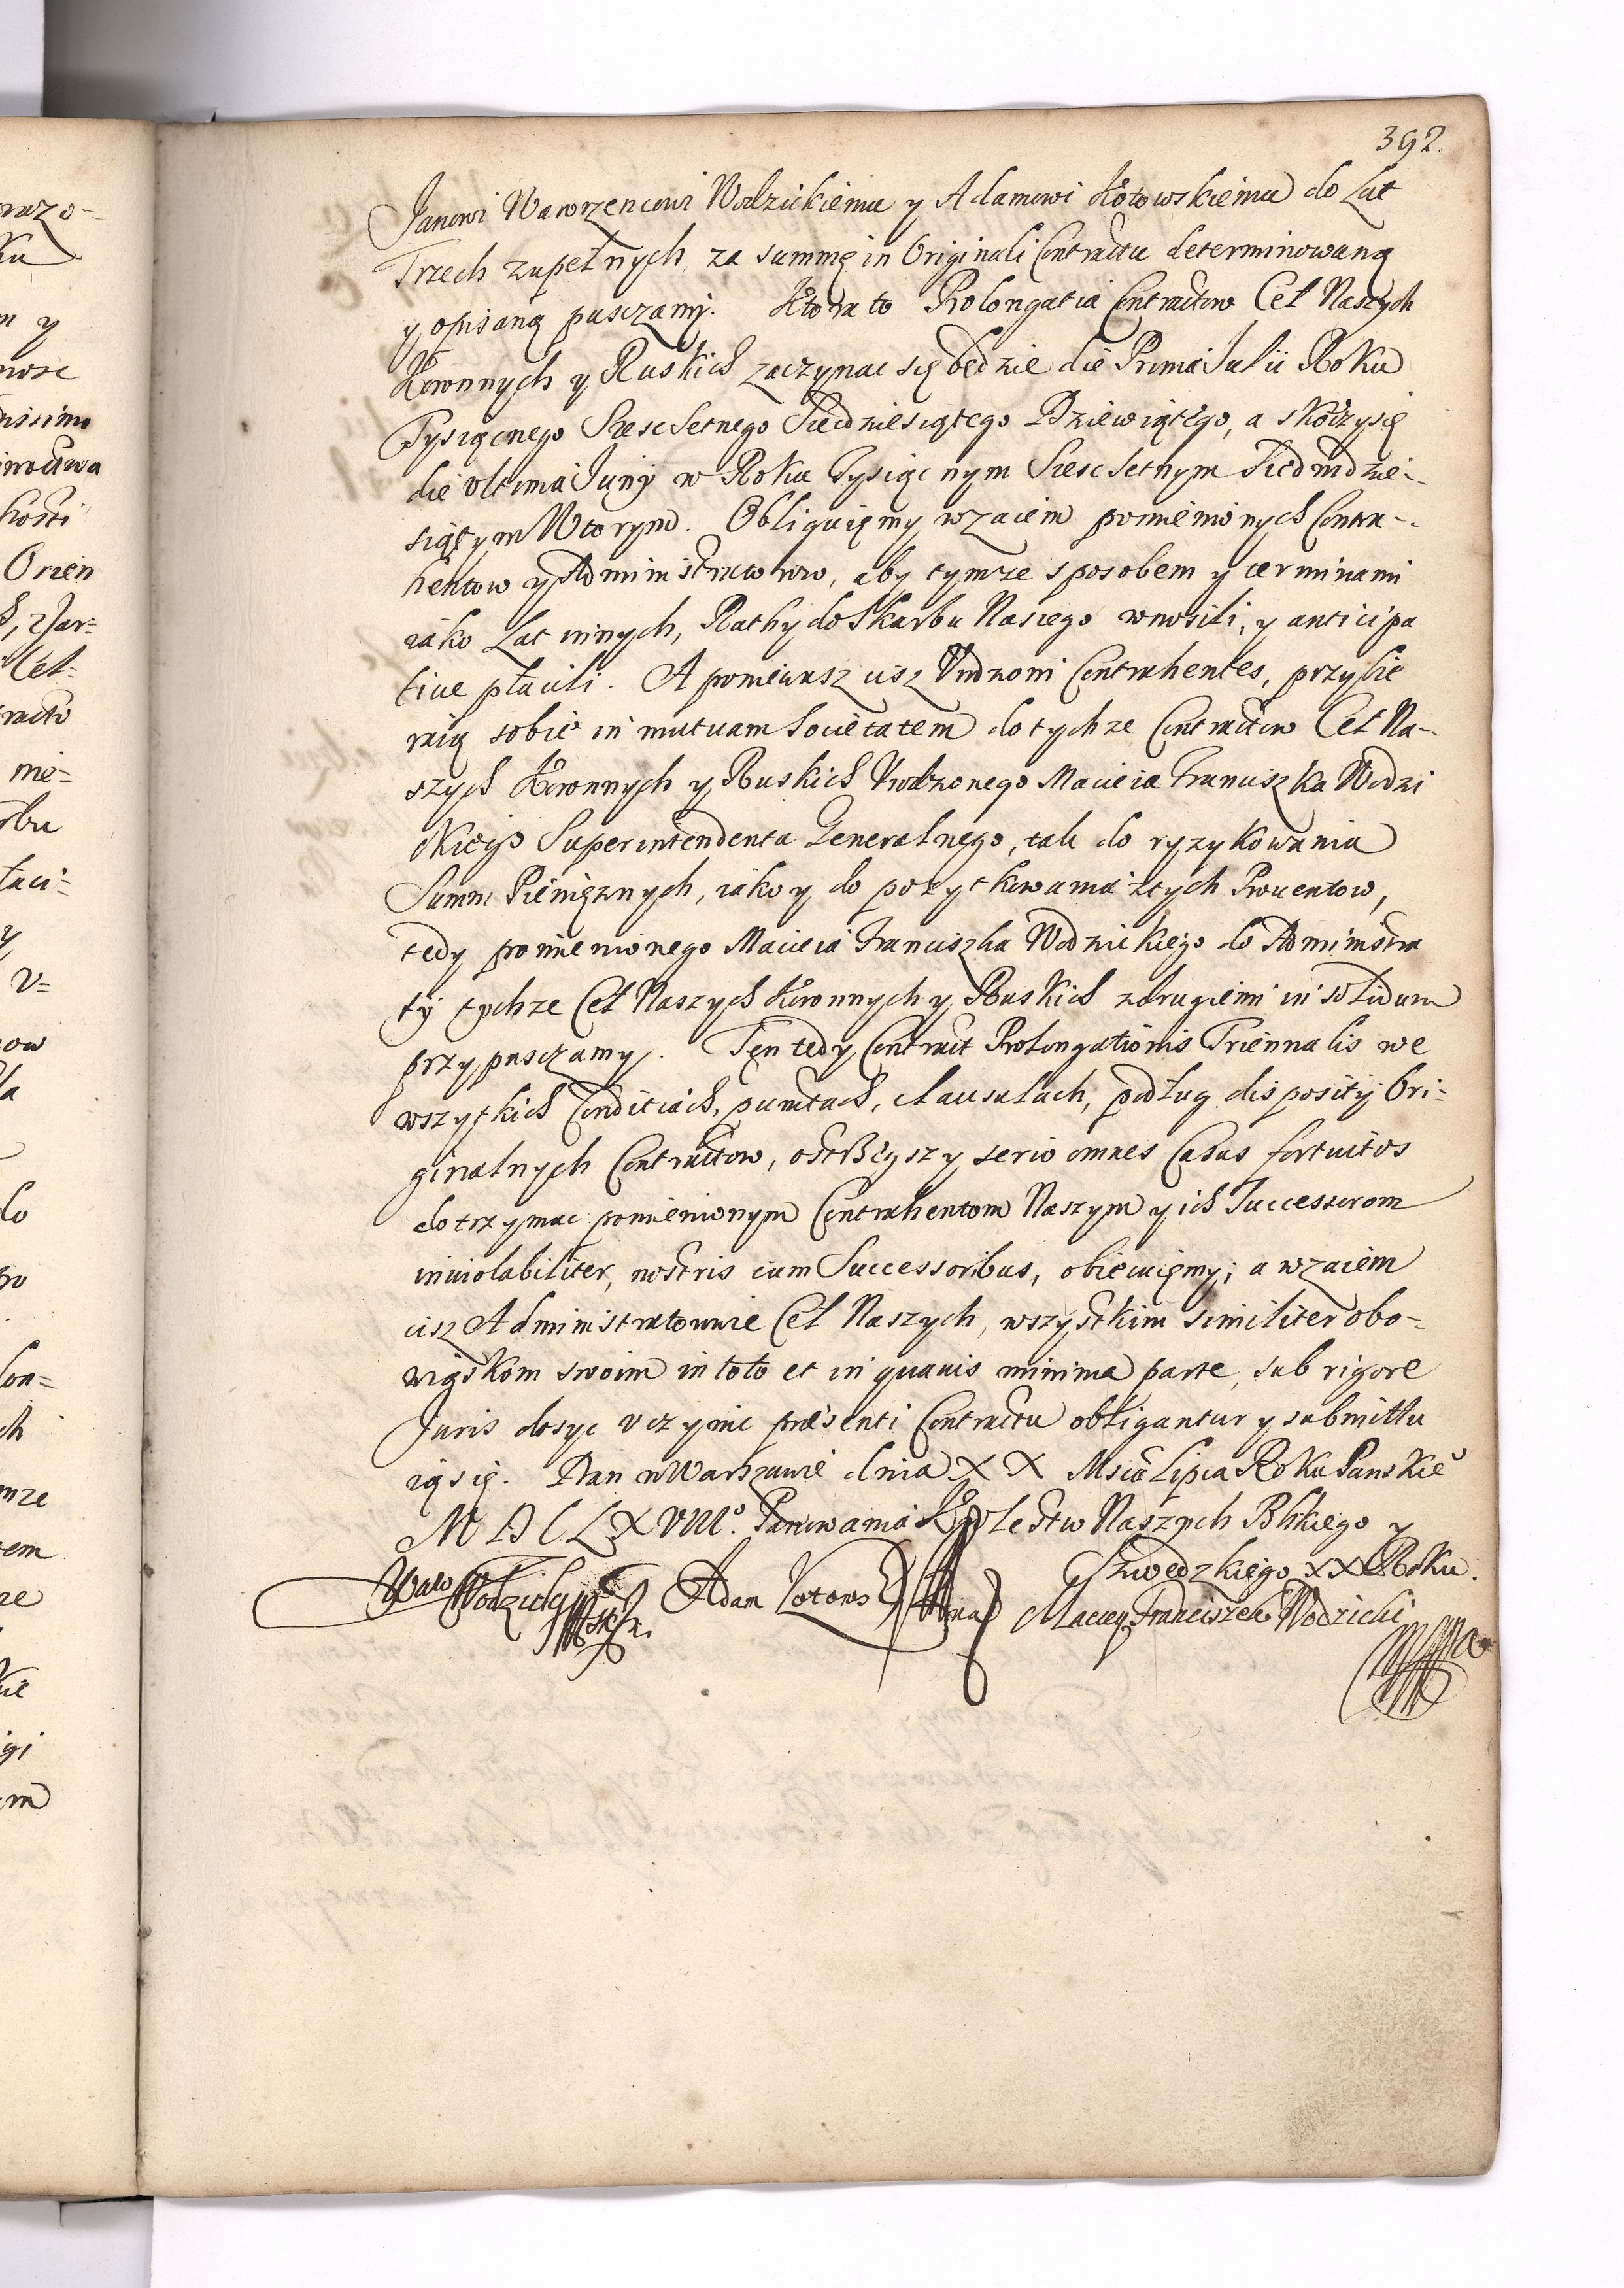 392.
Janowi Wawrzencowi Wodzickiemu y Adamowi Kotowskiemu do Lat
Trzech zupełnych, za summę in Originali Contractu determinowaną
y opisaną pusczamy. Ktora to Prolongatia Contractow Ceł Naszych
Koronnych y Ruskich zaczynac się będzie die Prima Julii Roku
Tysiącnego Szescsetnego Siedziesiątego Dziewiątego, a skoczy się
die vltima Junij w Roku Tysiącnym Szescsetnym Siedmdzie-
siątym Wtorym. Obliguięmy wzaiem pomienionych Contra-
hentow y Administratorow, aby tymze sposobem y terminami
iako Lat innych, Rathy do Skarbu Naszego wnosili, y anticipa
tiue płacili. A poniewasz cisz Vrodzoni Contrahentes, przybie
raią sobie in mutuam Societatem do tychze Contractow Ceł Na-
szych Koronnych y Ruskich Vrodzonego Macieia Franciszka Wodzi
ckiego Superintendenta Generalnego, tak do ryzykowania
Summ Pieniężnych, iako y do pozytkowania ztych Prouentow,
tedy pomienionego Macieia Franciszka Wodzickiego do Administra
tij tychze Ceł Naszych Koronnych y Ruskich zdrugiemi in solidum
przypusczamy. Ten tedy Contract Prolongationis Triennalis we
wszytkich Conditiach, punctach, clausulach, podług dispositij Ori-
ginalnych Contractow, ostrzegszy serio omnes Casus fortuitos
dotrzymac pomienionym Contrahentom Naszym y ich Successorom
inuiolabiliter, nostris cum Successoribus, obiecuięmy; a wzaiem
cisz Administratorowie Ceł Naszych, wszystkim similiter obo-
wiąskom swoim in toto et in quauis minima parte, sub rigore
Juris dosyc vczynic præsenti Contractu obligantur y submittu
ią się. Dan w Warszawie dnia XX Msca Lipca Roku Panskieo
MDCLXVIIIo. Panowania Krolestw Naszych Polskiego y
Szwedzkiego XX Roku.
Waw Wodzicky Adam Kotowski Maciey Franciszek Wodzicki